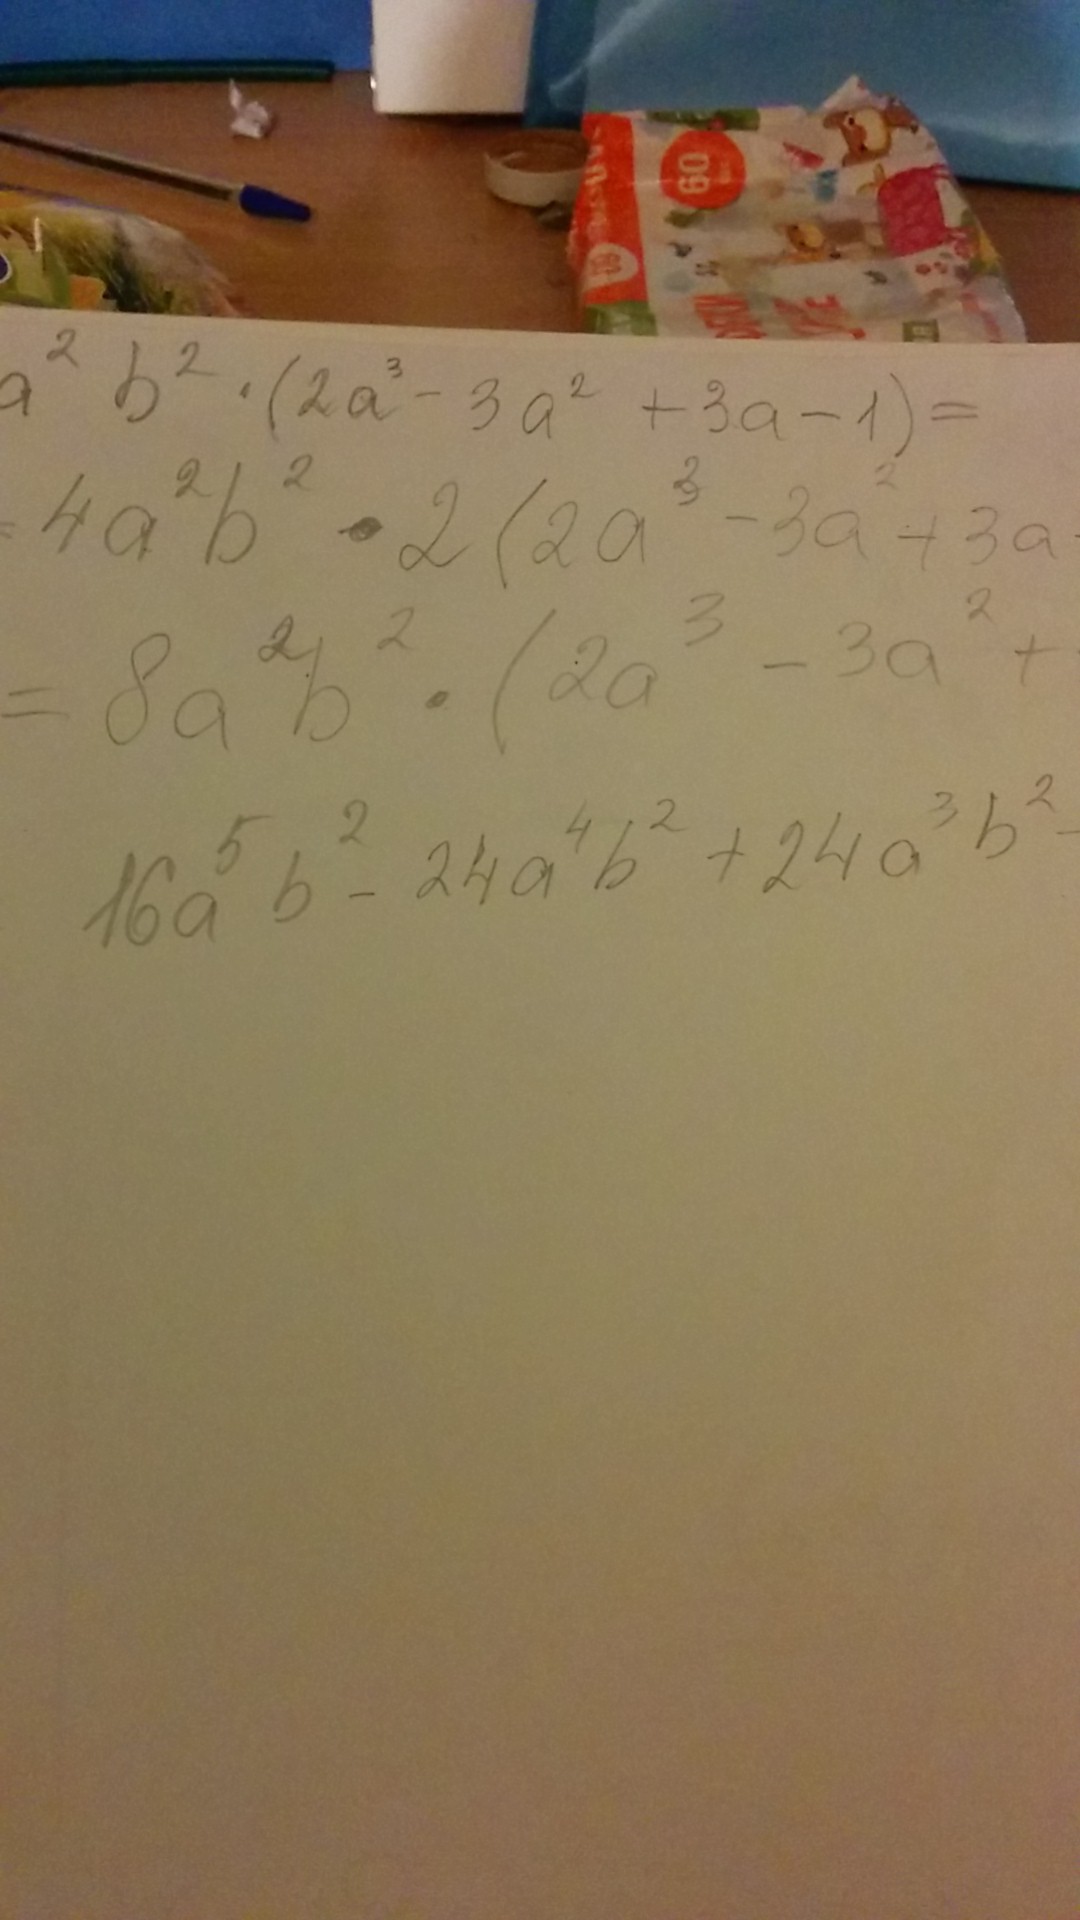 60
a² b² · (2a³ - 3a² + 3a - 1) =
= 4a²b² · 2 (2a³ - 3a² + 3a -
= 8a²b² · (2a³ - 3a² +
16a⁵b² - 24a⁴b² + 24a³b² -